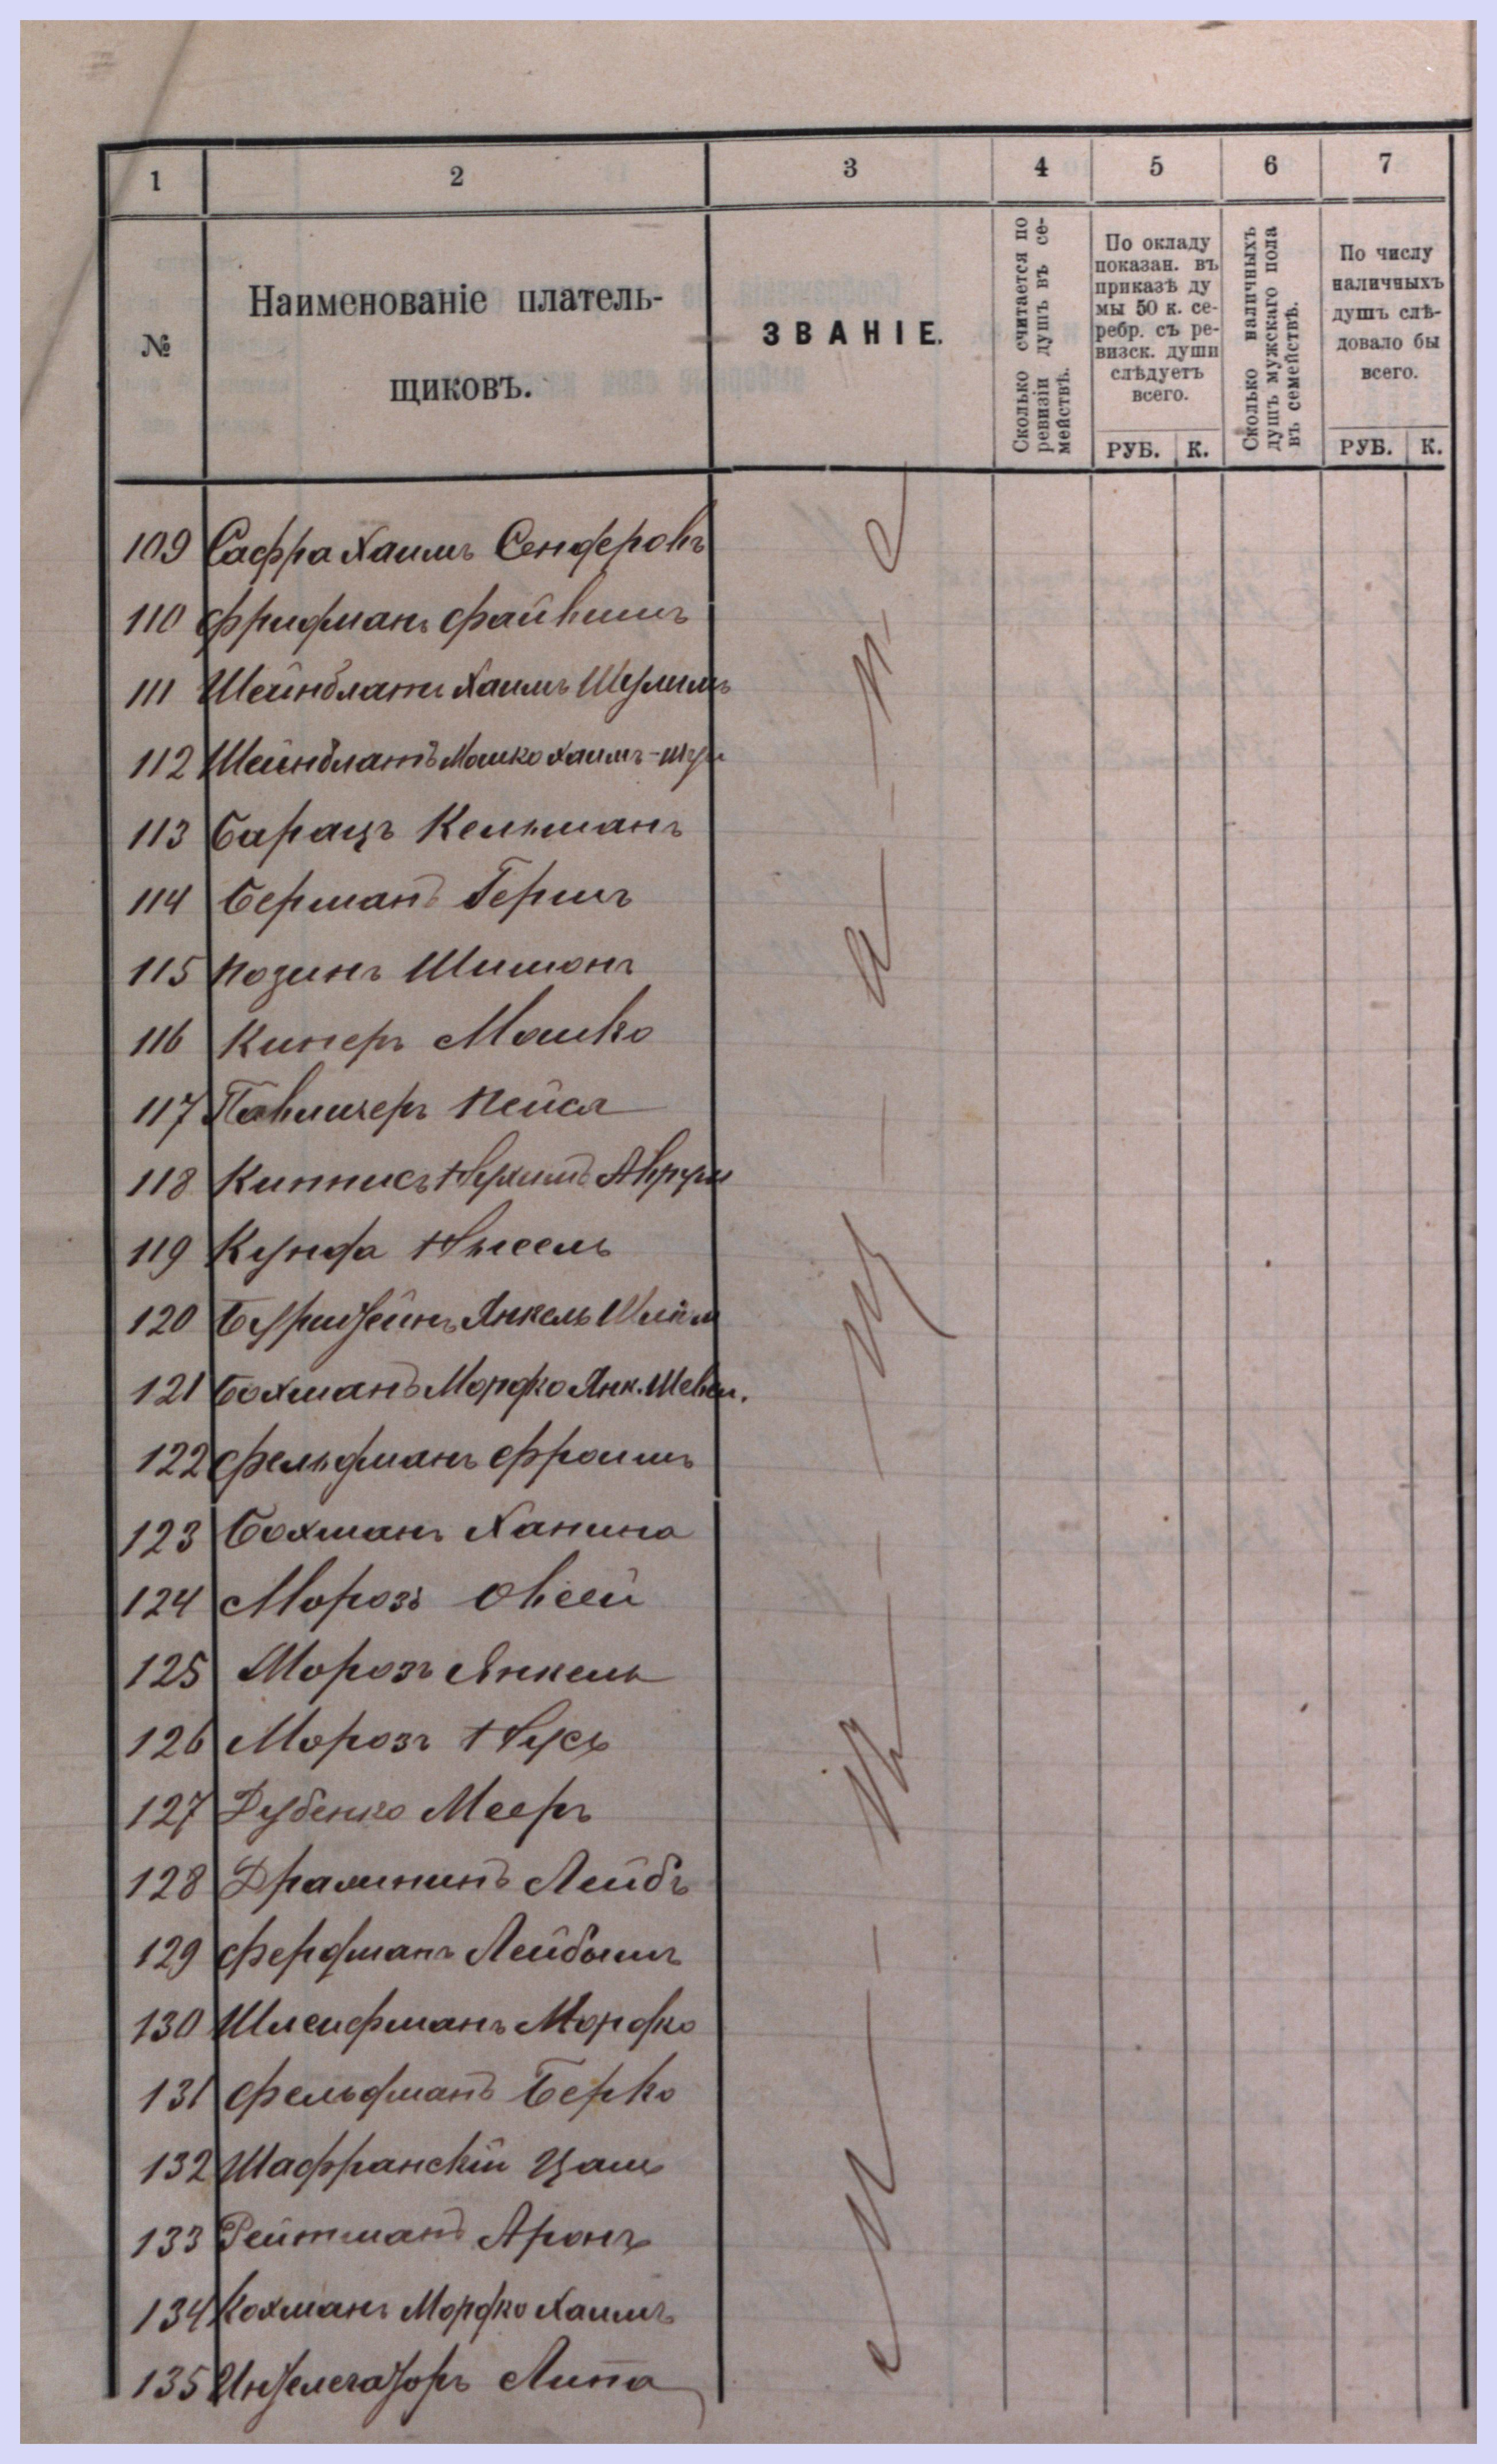 1 2 3 4 5 6 7
№
Наименованіе платель-
щиковъ.
ЗВАНІЕ.
Сколько считается по
ревизіи душъ въ се-
мействѣ.
По окладу
показан. въ
приказѣ ду
мы 50 к. се-
ребр. съ ре-
визск. души
слѣдуетъ
всего.
РУБ. К.
Сколько наличныхъ
душъ мужскаго пола
въ семействѣ.
По числу
наличныхъ
душъ слѣ-
довало бы
всего.
РУБ. К.
109 Сафра Хаимъ Сендеровъ
110 Фридманъ Файвишъ
111 Шейнблатъ Хаимъ Шулимъ
112 Шейнблатъ Мошко Хаимъ-Шул
113 Барацъ Кельманъ
114 Берманъ Гершъ
115 Нозинъ Шимонъ
116 Кинеръ Мошко
117 Павличеръ Нейся
118 Кипнисъ Нухимъ Аврум
119 Кунда Нысель
120 Буриштейнъ Янкель Шлём
121 Бохманъ Мордко Янк. Шевел.
122 Фельдманъ Фроимъ
123 Бохманъ Ханина
124 Морозъ Овсей
125 Морозъ Янкель
126 Морозъ Нусъ
127 Дубенко Мееръ
128 Лейбъ
129 Фердманъ Лейбышъ
130 Шлейфманъ Мордко
131 Фельдманъ Берко
132 Шафранскій
133 Рейтманъ Аронъ
134 Кохманъ Мордко Хаимъ
135 Липа